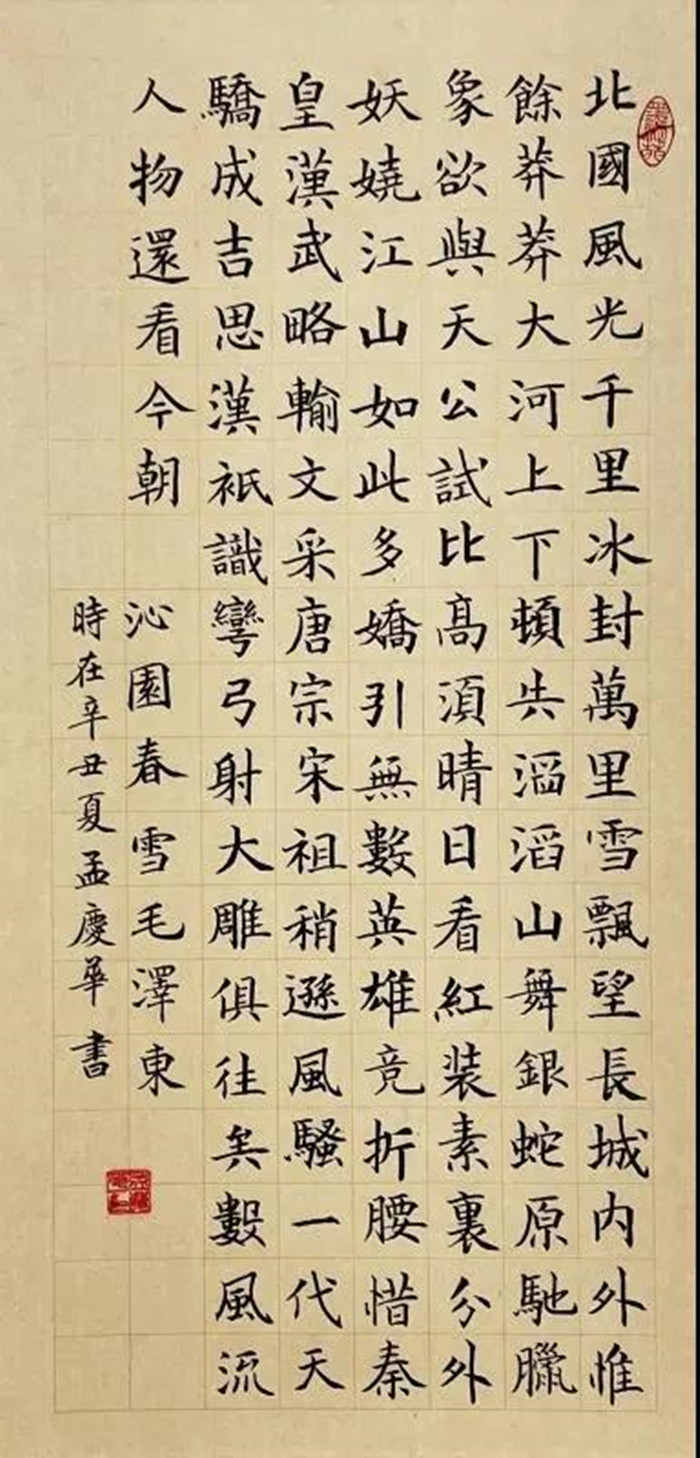 北國風光千里冰封萬里雪飄望長城内外惟
餘莽莽大河上下頓失滔滔山舞銀蛇原馳臘
象欲與天公試比高湏晴日看紅装素裹分外
妖嬈江山如此多嬌引無數英雄竞折腰惜秦
皇漢武略輸文采唐宗宋祖稍遜風騷一代天
驕成吉思漢衹識彎弓射大雕俱往矣數風流
人物還看今朝 沁園春雪毛澤東
時在辛丑夏孟慶華書